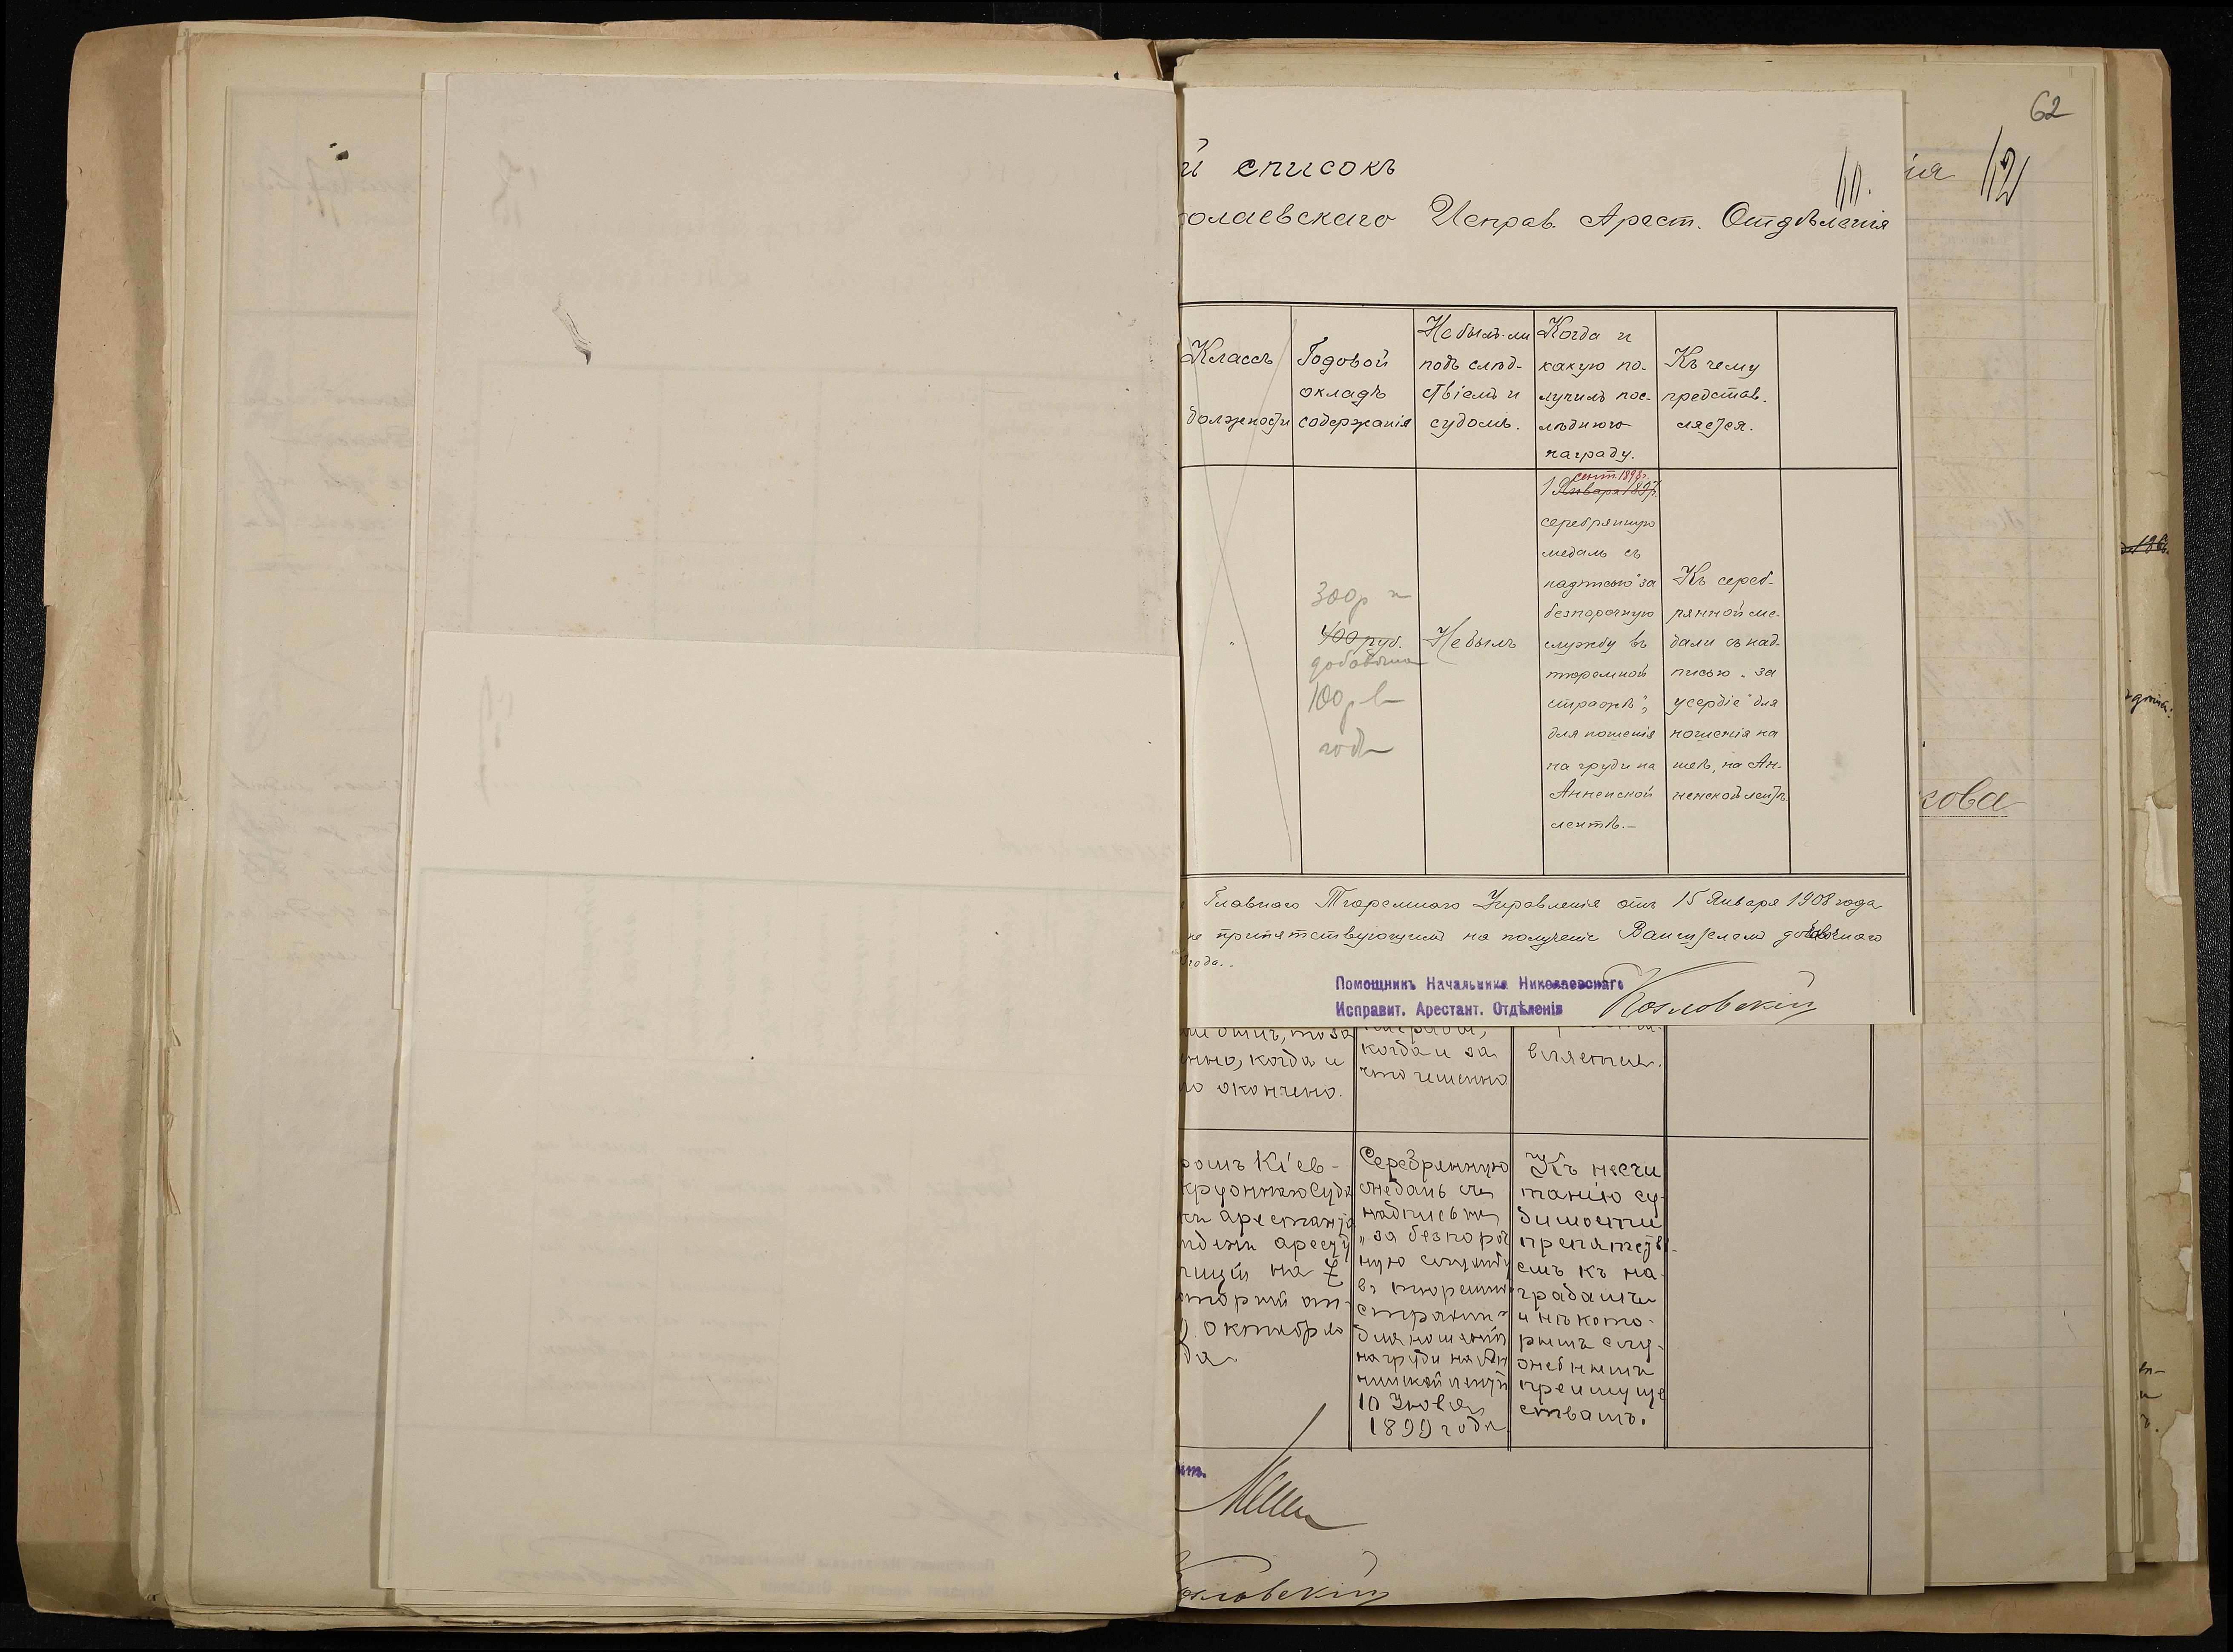 62
й списокъ
ія
олаевскаго Исправ. Арест. Отдѣленія
Классъ
должности
Годовой
окладъ
содержанія
Не былъ-ли
подъ слѣд-
ствіемъ и
судомъ.
Когда и
какую по-
лучилъ пос-
лѣднюю
награду.
Къ чему
представ-
ляется.
300р и
400 руб.
добавочн
100р в
годъ
Не былъ
сент. 1898г.
1 Января 1897г.
серебрянную
медаль съ
надписью "за
безпорочную
службу въ
тюремной
стражѣ",
для ношенія
на груди на
Аннинской
лентѣ.-
Къ сереб-
рянной ме-
дали съ над-
писью "за
усердіе" для
ношенія на
шеѣ, на Ан-
ненской лентѣ.
Главнаго Тюремнаго Управленія отъ 15 Января 1908 года
не припятствующимъ на полученіе добавочнаго
года..
Помощникъ Начальника Николаевскаго
Исправит. Арестант. Отдѣленія
Козловскій
кова
когда и
о окончено.
когда и за
что именно
вляется.
ромъ Кіев-
кружнаго Суда
на
октября
да
Серебрянную
медаль съ
надписью
"за безпороч
ную службу
въ тюремной
стражѣ
для ношенія
на груди на Ан
нинской лентѣ
10 Января
1899 года
Къ несчи
танію су-
димости
препятстві-
емъ къ на-
градамъ
и нѣкото-
рымъ слу-
жебнымъ
преимуще
ствамъ.
озловскій